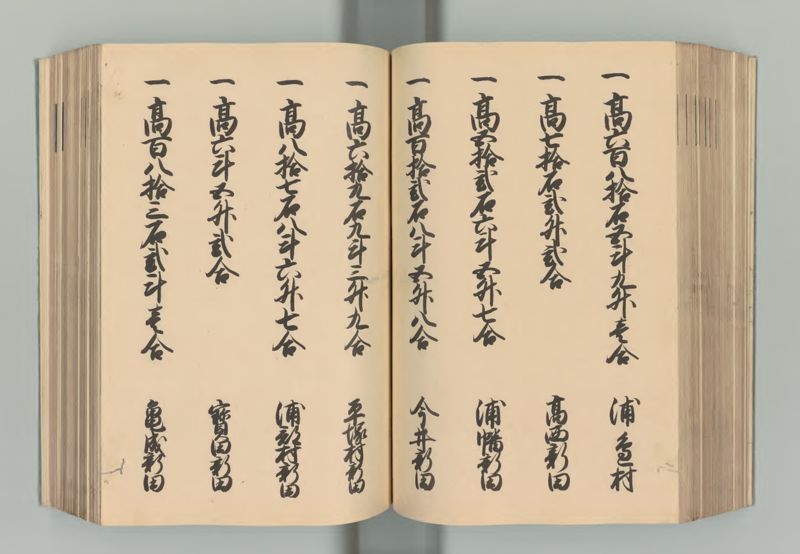 一高六百八拾石五斗九升壱合 浦 村
一高七拾石弐升弐合 高西新田
一高五拾弐石六斗五升七合 浦幡新田
一高百拾弐石八斗五升八合 今井新田
一高六拾九石九斗三升九合 平塚村新田
一高八拾七石八斗六升七合 浦部村新田
一高六斗五升弐合 寳田新田
一高百八拾三石弐斗壱合 亀成新田